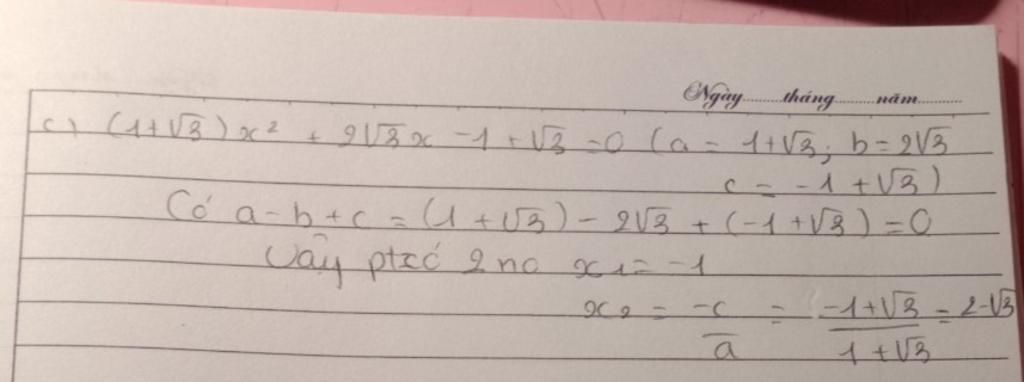 Ngày.........tháng.........năm.........
c) (1+√3)x² + 2√3x -1+√3 =0 (a = 1+√3; b=2√3
c = -1+√3)
Có a-b+c = (1+√3) - 2√3 + (-1+√3) =0
Vậy ptcó 2 no x₁= -1
x₂ = -c/a = -1+√3/1+√3 = 2-√3